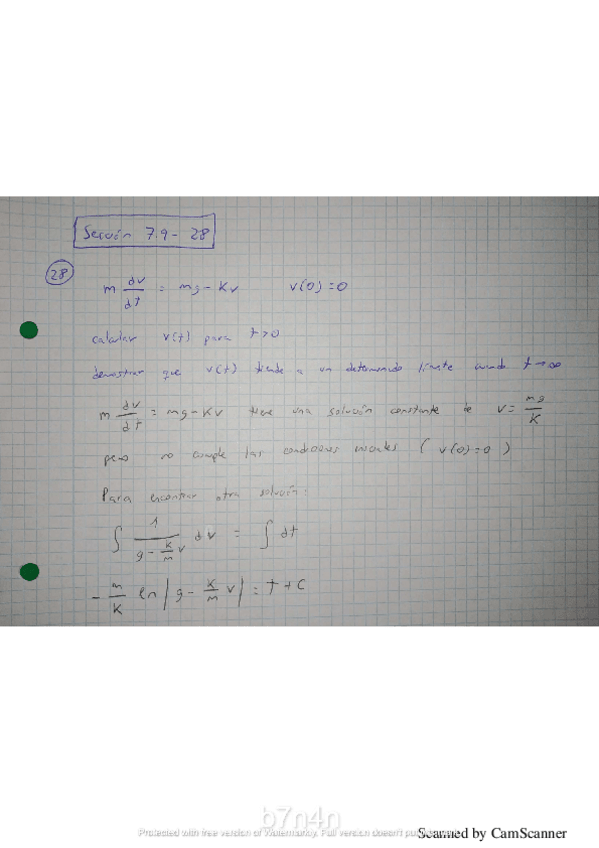 Sección 7.9 - 28
28
m dv/dt = mg - Kv v(0) = 0
calcular v(t) para t > 0
demostrar que v(t) tiende a un determinado límite cuando t → ∞
m dv/dt = mg - Kv tiene una solución constante de v = mg/K
pero no cumple las condiciones iniciales ( v(0) = 0 )
Para encontrar otra solución:
∫ 1/(g - K/m v) dv = ∫ dt
- m/K ln | g - K/m v | = t + C
b7n4n
Protected with free version of Watermarkly. Full version doesn't put
Scanned by CamScanner